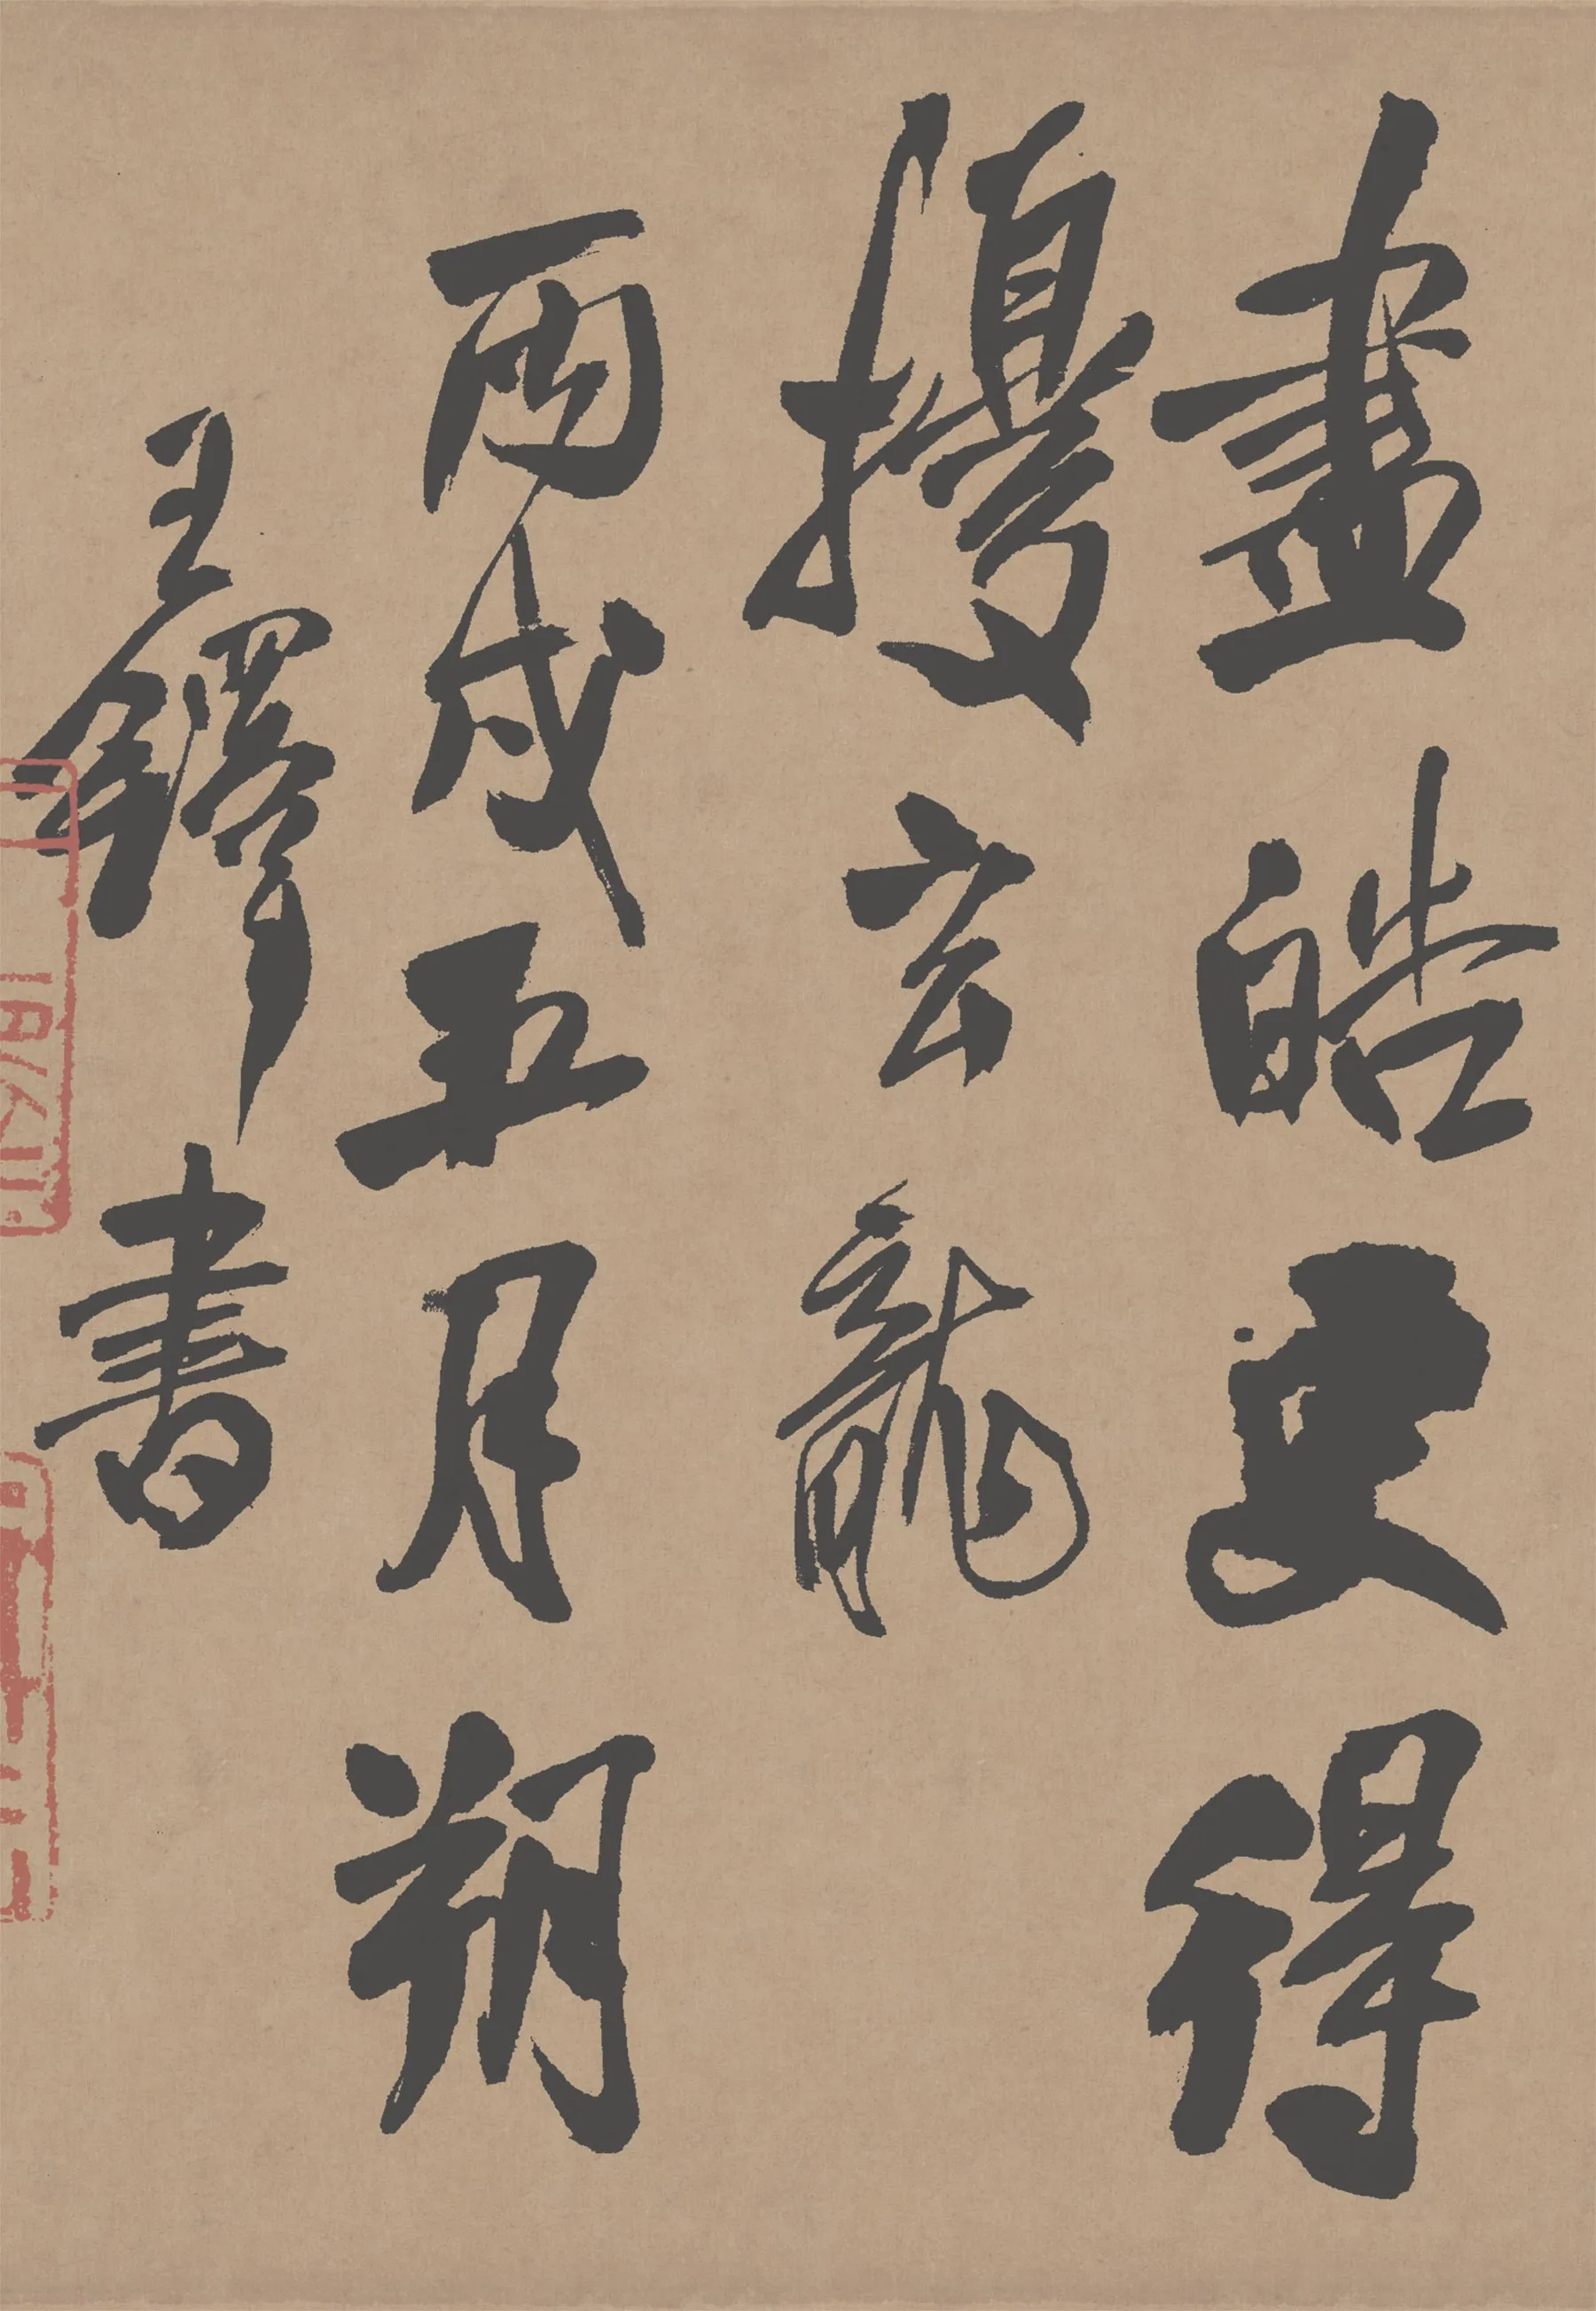 盡皓更得
擾玄龍
丙戌五月朔
王鐸書